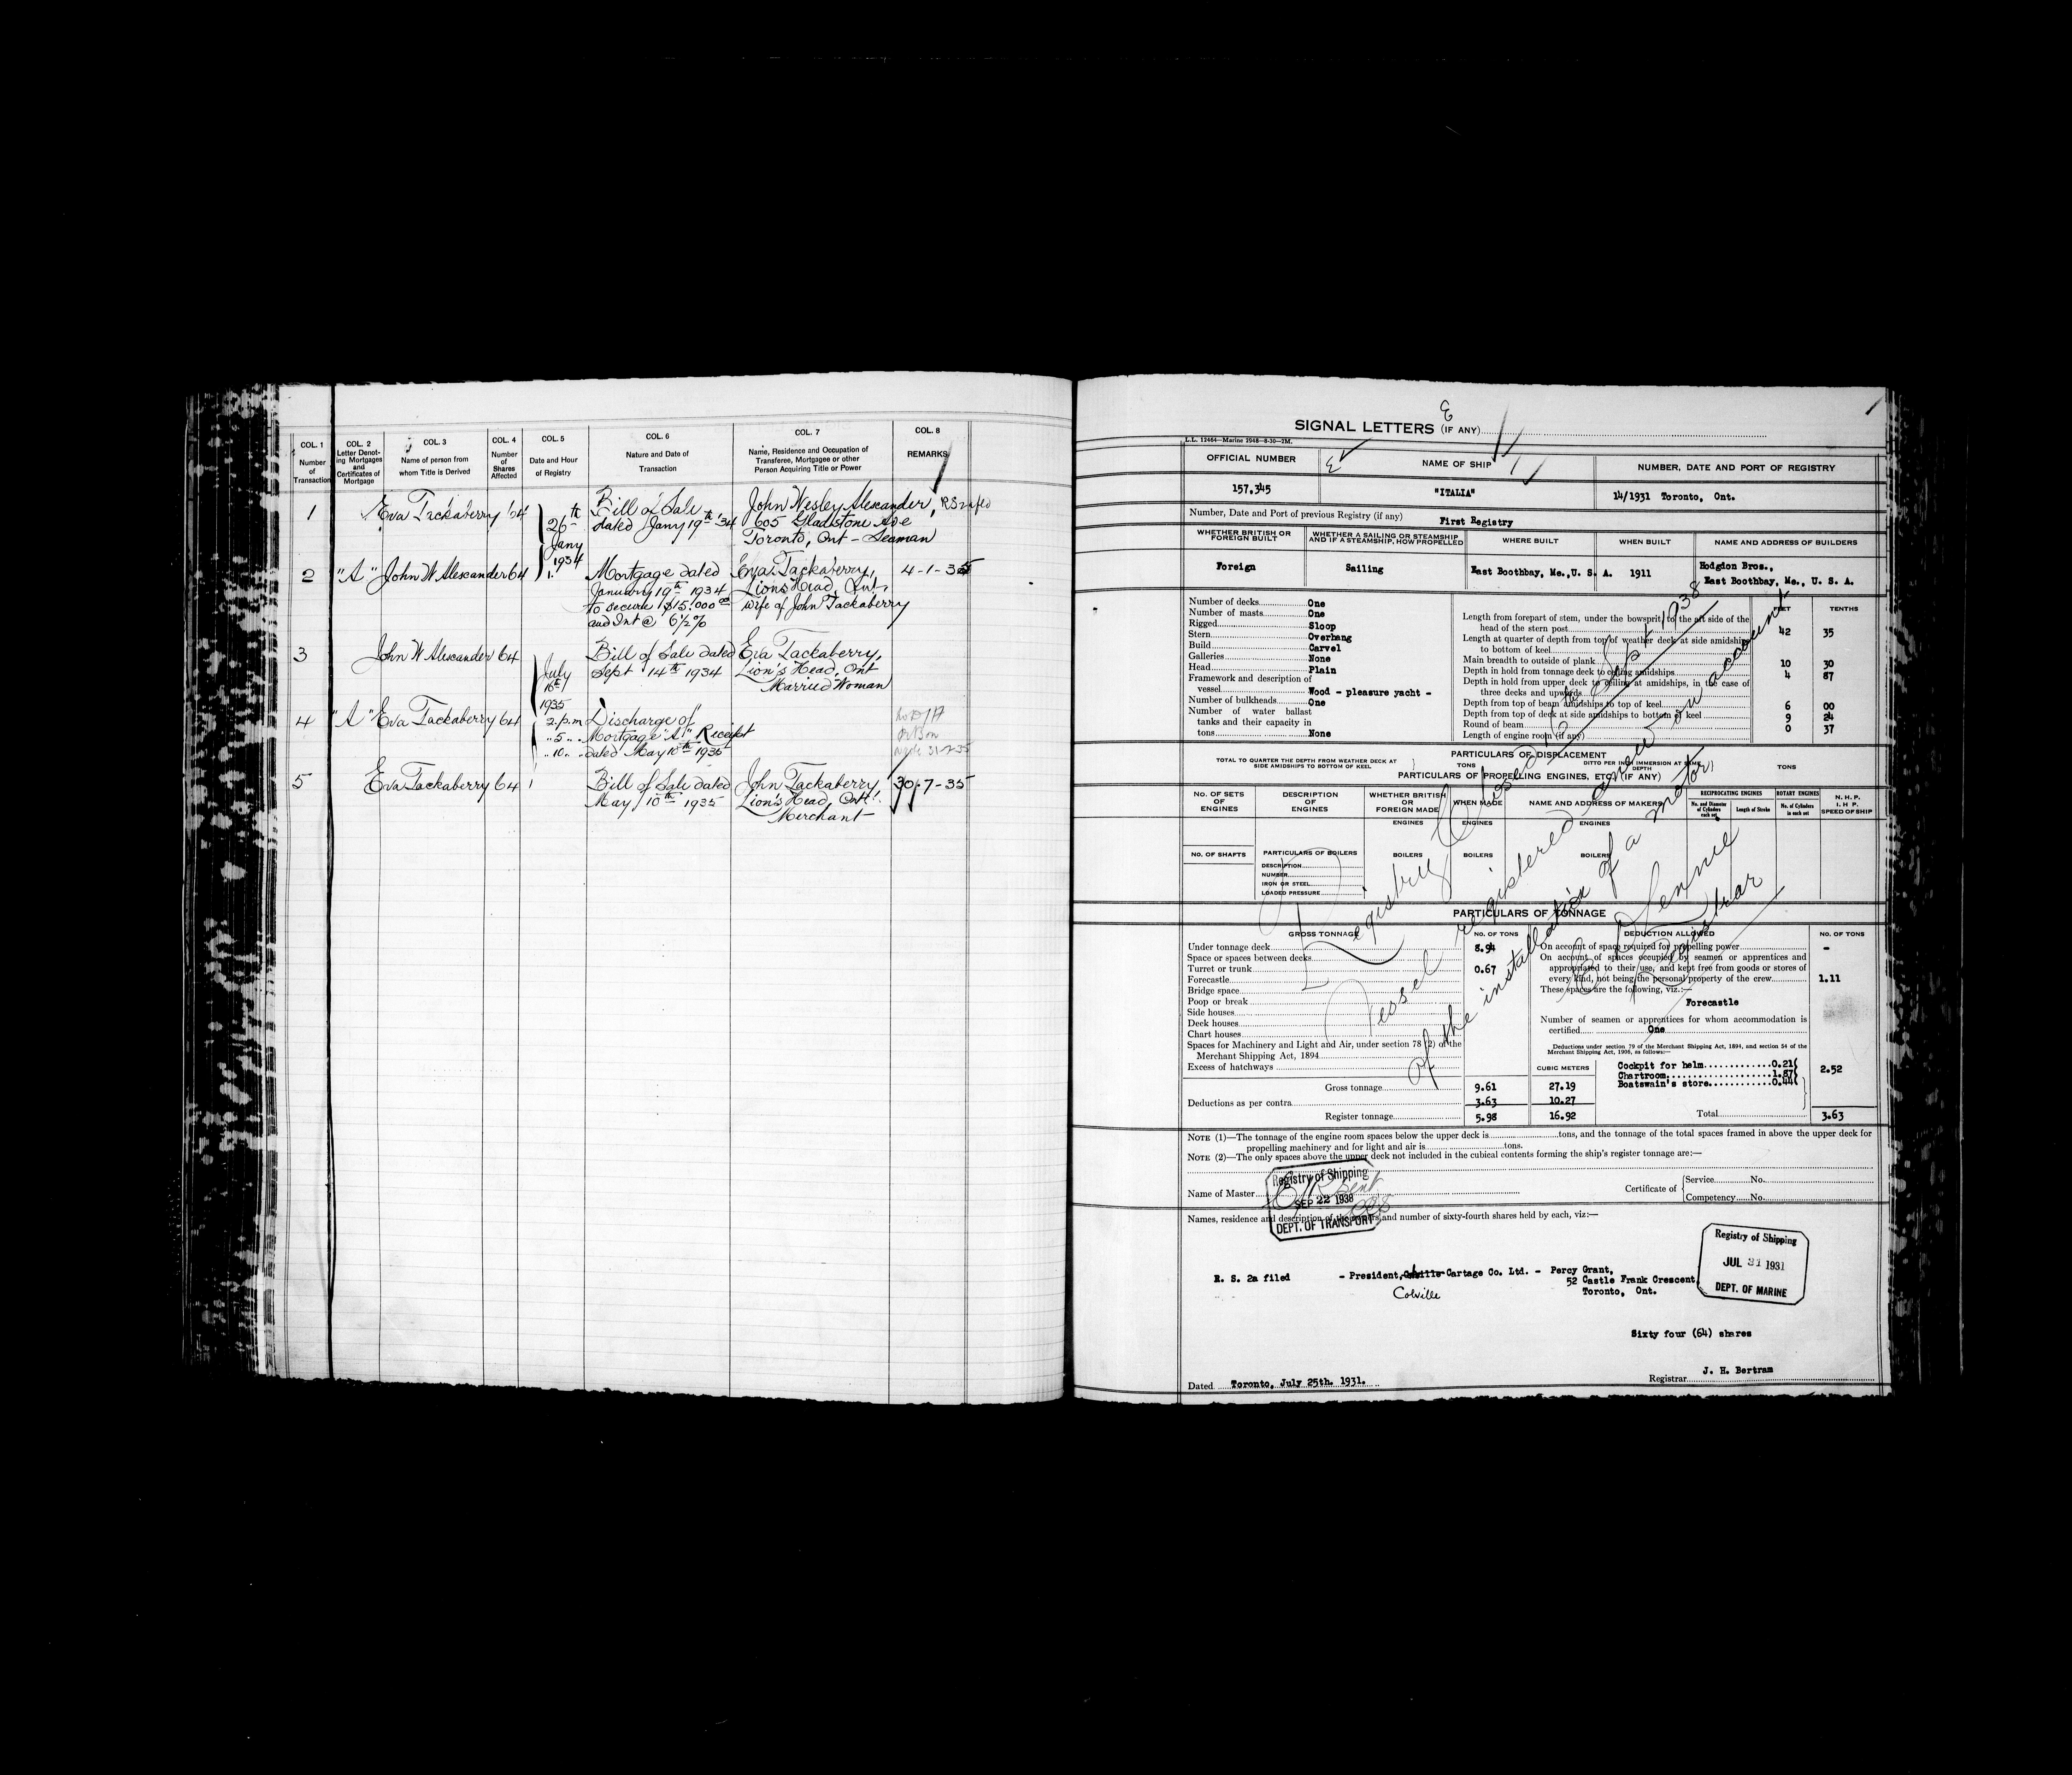 COL. 1 COL. 2 COL. 3 COL. 4 COL. 5 COL. 6 COL. 7 COL. 8
Number of Transaction
Letter Denoting Mortgages and Certificates of Mortgage
Name of person from whom Title is Derived
Number of Shares Affected
Date and Hour of Registry
Nature and Date of Transaction
Name, Residence and Occupation of Transferee, Mortgagee or other Person Acquiring Title or Power
REMARKS
1 Eva Tackaberry 64 Bill of Sale John Wesley Alexander,
26th dated Jany 19th '34 605 Gladstone Ave
Jany Toronto, Ont - Seaman
1934
2 "A" John W Alexander 64 Mortgage dated Eva Tackaberry, 4-1-35
January 19th 1934 Lion's Head, Ont,
to secure $15.000 00 wife of John Tackaberry
and Int @ 6½%
3 John W Alexander 64 Bill of Sale dated Eva Tackaberry,
July Sept 14th 1934 Lion's Head, Ont
16th Married Woman
1935
4 "A" Eva Tackaberry 64 2 p.m Discharge of
" 5 " Mortgage "A". Receipt
" 10 " dated May 10th 1935
5 Eva Tackaberry 64 Bill of Sale dated John Tackaberry, 30-7-35
May 10th 1935 Lion's Head, Ont.
Merchant
SIGNAL LETTERS (IF ANY)
L.L. 12464—Marine 2948—8-30—2M.
OFFICIAL NUMBER NAME OF SHIP NUMBER, DATE AND PORT OF REGISTRY
157,345 "ITALIA" 14/1931 Toronto, Ont.
Number, Date and Port of previous Registry (if any) First Registry
WHETHER BRITISH OR FOREIGN BUILT
WHETHER A SAILING OR STEAMSHIP AND IF A STEAMSHIP, HOW PROPELLED
WHERE BUILT WHEN BUILT NAME AND ADDRESS OF BUILDERS
Foreign Sailing East Boothbay, Me., U. S. A. 1911 Hodgdon Bros.,
East Boothbay, Me., U. S. A.
Number of decks One
Number of masts One
Rigged Sloop
Stern Overhang
Build Carvel
Galleries None
Head Plain
Framework and description of
vessel Wood - pleasure yacht -
Number of bulkheads One
Number of water ballast
tanks and their capacity in
tons None
FEET TENTHS
Length from forepart of stem, under the bowsprit, to the aft side of the
head of the stern post 42 35
Length at quarter of depth from top of weather deck at side amidships
to bottom of keel
Main breadth to outside of plank 10 30
Depth in hold from tonnage deck to ceiling amidships 4 87
Depth in hold from upper deck to ceiling at amidships, in the case of
three decks and upwards
Depth from top of beam amidships to top of keel 6 00
Depth from top of deck at side amidships to bottom of keel 9 24
Round of beam 0 37
Length of engine room (if any)
PARTICULARS OF DISPLACEMENT
TOTAL TO QUARTER THE DEPTH FROM WEATHER DECK AT SIDE AMIDSHIPS TO BOTTOM OF KEEL TONS DITTO PER INCH IMMERSION AT SAME DEPTH TONS
PARTICULARS OF PROPELLING ENGINES, ETC. (IF ANY)
NO. OF SETS OF ENGINES
DESCRIPTION OF ENGINES
WHETHER BRITISH OR FOREIGN MADE
WHEN MADE
NAME AND ADDRESS OF MAKERS
RECIPROCATING ENGINES ROTARY ENGINES
No. and Diameter of Cylinders each set
Length of Stroke
No. of Cylinders in each set
N. H. P.
I. H. P.
SPEED OF SHIP
ENGINES ENGINES ENGINES
NO. OF SHAFTS PARTICULARS OF BOILERS BOILERS BOILERS BOILERS
DESCRIPTION
NUMBER
IRON OR STEEL
LOADED PRESSURE
Registry Closed Sept 1938
Vessel registered anew on account
of the installation of a motor
Registrar
PARTICULARS OF TONNAGE
GROSS TONNAGE NO. OF TONS
Under tonnage deck 8.94
Space or spaces between decks
Turret or trunk 0.67
Forecastle
Bridge space
Poop or break
Side houses
Deck houses
Chart houses
Spaces for Machinery and Light and Air, under section 78 (2) of the
Merchant Shipping Act, 1894
Excess of hatchways
CUBIC METERS
Gross tonnage 9.61 27.19
Deductions as per contra 3.63 10.27
Register tonnage 5.98 16.92
DEDUCTION ALLOWED NO. OF TONS
On account of space required for propelling power -
On account of spaces occupied by seamen or apprentices and
appropriated to their use, and kept free from goods or stores of
every kind, not being the personal property of the crew 1.11
These spaces are the following, viz.:—
Forecastle
Number of seamen or apprentices for whom accommodation is
certified One
Deductions under section 79 of the Merchant Shipping Act, 1894, and section 54 of the
Merchant Shipping Act, 1906, as follows:—
Cockpit for helm 0.21
Chartroom 1.87 2.52
Boatswain's store 0.44
Total 3.63
NOTE (1)—The tonnage of the engine room spaces below the upper deck is tons, and the tonnage of the total spaces framed in above the upper deck for
propelling machinery and for light and air is tons.
NOTE (2)—The only spaces above the upper deck not included in the cubical contents forming the ship's register tonnage are:—
Registry of Shipping
SEP 22 1938
DEPT. OF TRANSPORT
Name of Master
Certificate of Service No.
Competency No.
Names, residence and description of the owners and number of sixty-fourth shares held by each, viz:—
Registry of Shipping
JUL 31 1931
DEPT. OF MARINE
R. S. 2a filed - President, Cartage Co. Ltd. - Percy Grant,
Colville
52 Castle Frank Crescent,
Toronto, Ont.
Sixty four (64) shares
Dated Toronto, July 25th. 1931.
Registrar J. H. Bertram